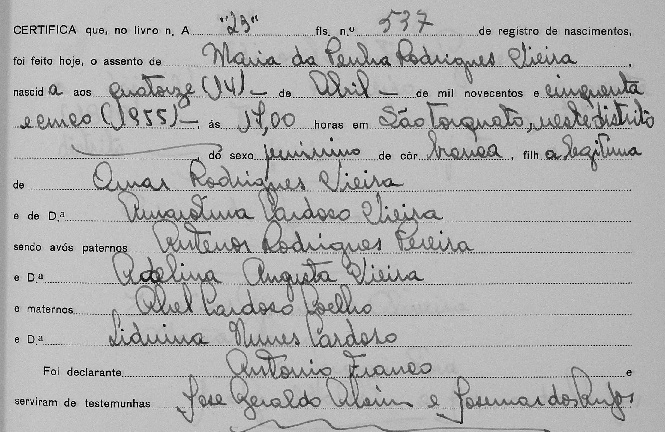 CERTIFICA que, no livro n. A "23" fls. n.º 537 de registro de nascimentos,
foi feito hoje, o assento de Maria da Penha Rodrigues Vieira
nascida aos quatorze (14) — de Abril — de mil novecentos e cinquenta
e cinco (1955) —, ás 17,00 horas em São Torquato, neste distrito
, do sexo feminino de côr branca, filha legitima
de Omar Rodrigues Vieira
e de D.ª Cardoso Vieira
sendo avós paternos Antenor Rodrigues Pereira
e D.ª Adelina Augusta Vieira
e maternos Abel Cardoso Coelho
e D.ª Liduina Nunes Cardoso
Foi declarante Antonio Franco e
serviram de testemunhas Jose Geraldo e Josemar dos Anjos